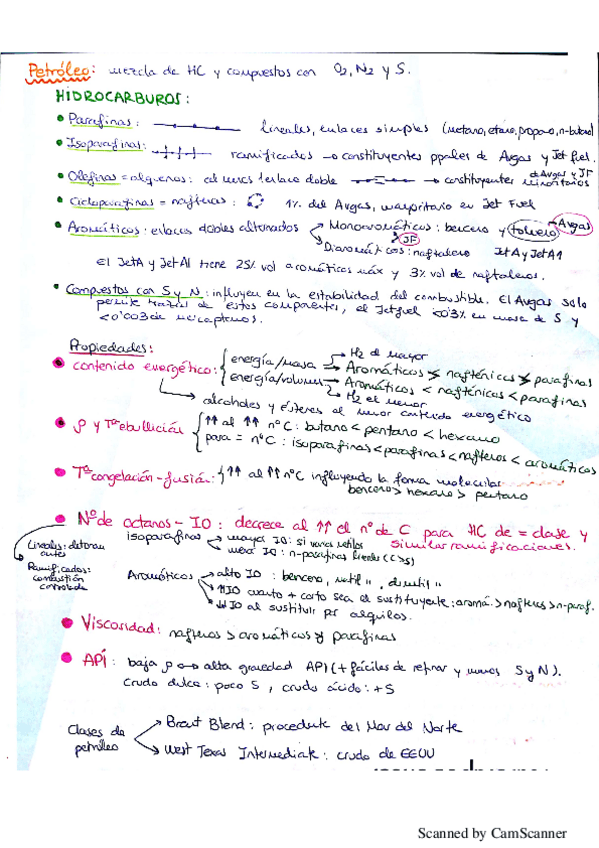 Petróleo: mezcla de HC y compuestos con O2, N2 y S.
HIDROCARBUROS:
• Parafinas: lineales, enlaces simples (metano, etano, propano, n-butano)
• Isoparafinas: ramificados → constituyentes ppales de Avgas y Jet fuel.
• Olefinas = alquenos: al menos 1 enlace doble → constituyentes minoritarios de Avgas y JF
• Cicloparafinas = naftenos: 1% del Avgas, mayoritario en Jet Fuel
• Aromáticos: enlaces dobles alternados
Monoaromáticos: benceno y tolueno → Avgas
Diaromáticos: naftaleno JF Jet A y Jet A1
El Jet A y Jet A1 tiene 25% vol aromáticos máx y 3% vol de naftalenos.
• Compuestos con S y N: influyen en la estabilidad del combustible. El Avgas solo
permite trazas de estos componentes, el Jet fuel <0'3% en masa de S y
<0'003 de mercaptanos.
Propiedades:
• contenido energético:
energía/masa → H2 el mayor
Aromáticos < nafténicos < parafinas
energía/volumen → Aromáticos < nafténicos < parafinas
H2 el menor
→ alcoholes y ésteres el menor contenido energético
• ρ y Tª ebullición
↑↑ al ↑↑ nº C: butano < pentano < hexano
para = nº C: isoparafinas < parafinas < naftenos < aromáticos
• Tª congelación-fusión: ↑↑ al ↑↑ nº C influyendo la forma molecular
benceno > hexano > pentano
• Nº de octanos - IO: decrece al ↑↑ el nº de C para HC de = clase y
similar ramificaciones.
Lineales: detonan antes
Ramificados: combustión controlada
isoparafinas
mayor IO: si varios metilos
menor IO: n-parafinas lineales (C>5)
Aromáticos
alto IO: benceno, metil ", dimetil "
↑IO cuanto + corto sea el sustituyente: aromá. > naftenos > n-paraf.
↓↓ IO al sustituir por alquilos.
• Viscosidad: naftenos > aromáticos y parafinas
• API: baja ρ ↔ alta gravedad API (+ fáciles de refinar y menos S y N).
Crudo dulce: poco S, crudo ácido: +S
Clases de petróleo
Brent Blend: procedente del Mar del Norte
West Texas Intermediate: crudo de EEUU
Scanned by CamScanner